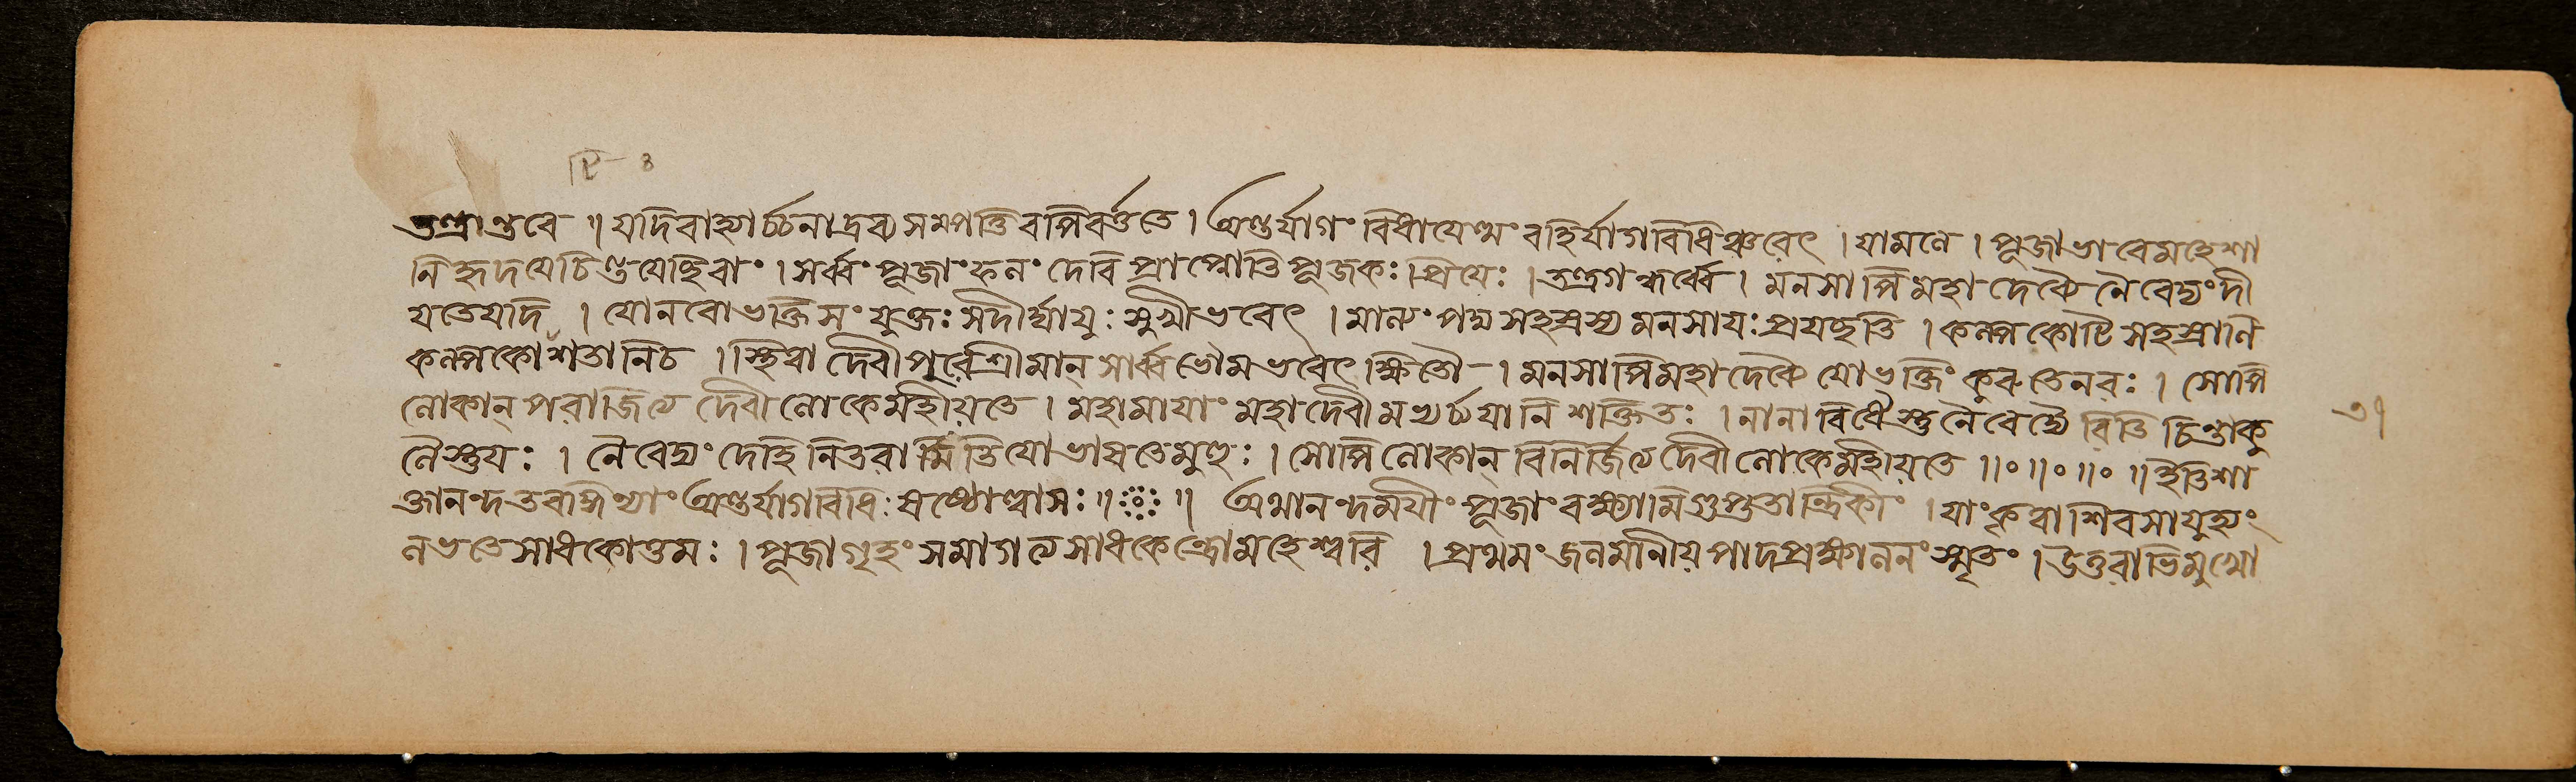 তন্ত্রান্তরে ॥ যদিবাহ্যার্চ্চনাদ্রব্য সম্পত্তিরপিবর্ত্ততে । অন্তর্যাগং বিধায়েত্থং বহির্যাগবিধিঞ্চরেৎ । যামলে । পূজাভাবেমহেশা
নি হৃদয়েচিন্তয়েচ্ছিবাং । সর্ব্বং পূজাংফলং দেবি প্রাপ্নোতিপূজকঃ প্রিয়েঃ । তন্ত্রগন্ধর্ব্বে । মনসাপিমহাদেব্যৈ নৈবেদ্যং দী
য়তেযদি । যোনরোভক্তিসংযুক্তঃ সদীর্ঘায়ুঃ সুখীভবেৎ । মাল্যং পদ্মসহস্রস্য মনসাযঃ প্রযচ্ছতি । কল্পকোটি সহস্রাণি
কল্পকোশতানিচ । স্থিত্বা দেবীপুরেশ্রীমান্ সার্ব্বভৌমভবেৎক্ষিতৌ । মনসাপিমহাদেব্যৈ যোভক্তিং কুরুতেনরঃ । সোপি
লোকান্ পরাজিত্য দেবীলোকেমহীয়তে । মহামায়াং মহাদেবীমর্চ্চয়ানি শক্তিতঃ । নানাবিধৈস্তুনৈবেদ্যৈ রিতি চিন্তাকু
লৈস্তুযঃ । নৈবেদ্যং দেহি নিতরামিতিযোভাসতেমুহুঃ । সোপিলোকান্ বিনির্জিত্যদেবীলোকেমহীয়তে ॥০॥০॥০॥ ইতিশা
ক্তানন্দতরঙ্গিণ্যাং অন্তর্যাগবিধিঃ ষষ্ঠোল্লাসঃ ॥ ॥ অথানন্দময়ীং পূজাং বক্ষ্যামিগুপ্ততান্ত্রিকীং । যাং কৃত্বা শিবসাযুজ্যং
লভতেসাধকোত্তমঃ । পূজাগৃহং সমাগত্যসাধকেন্দ্রোমহেশ্বরি । প্রথমং জলমানীয় পাদপ্রক্ষালনং স্মৃতং । উত্তরাভিমুখো